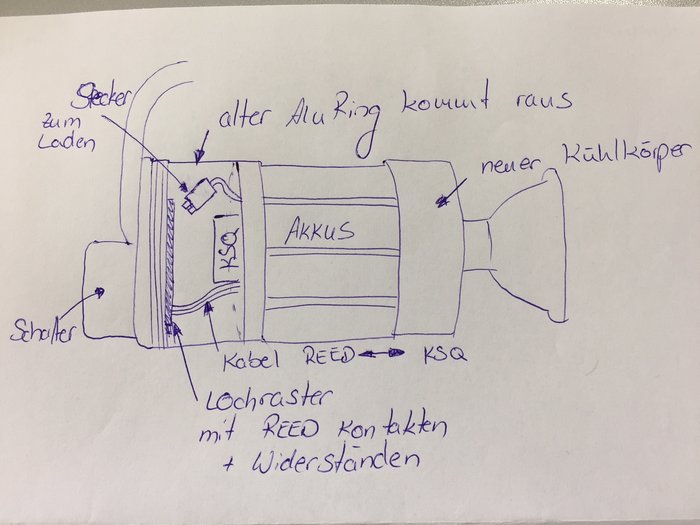 Stecker
zum
Laden
alter Alu Ring kommt raus
neuer Kühlkörper
KSQ
AKKUS
Schalter
Kabel REED ↔ KSQ
Lochraster
mit REED Kontakten
+ Widerständen